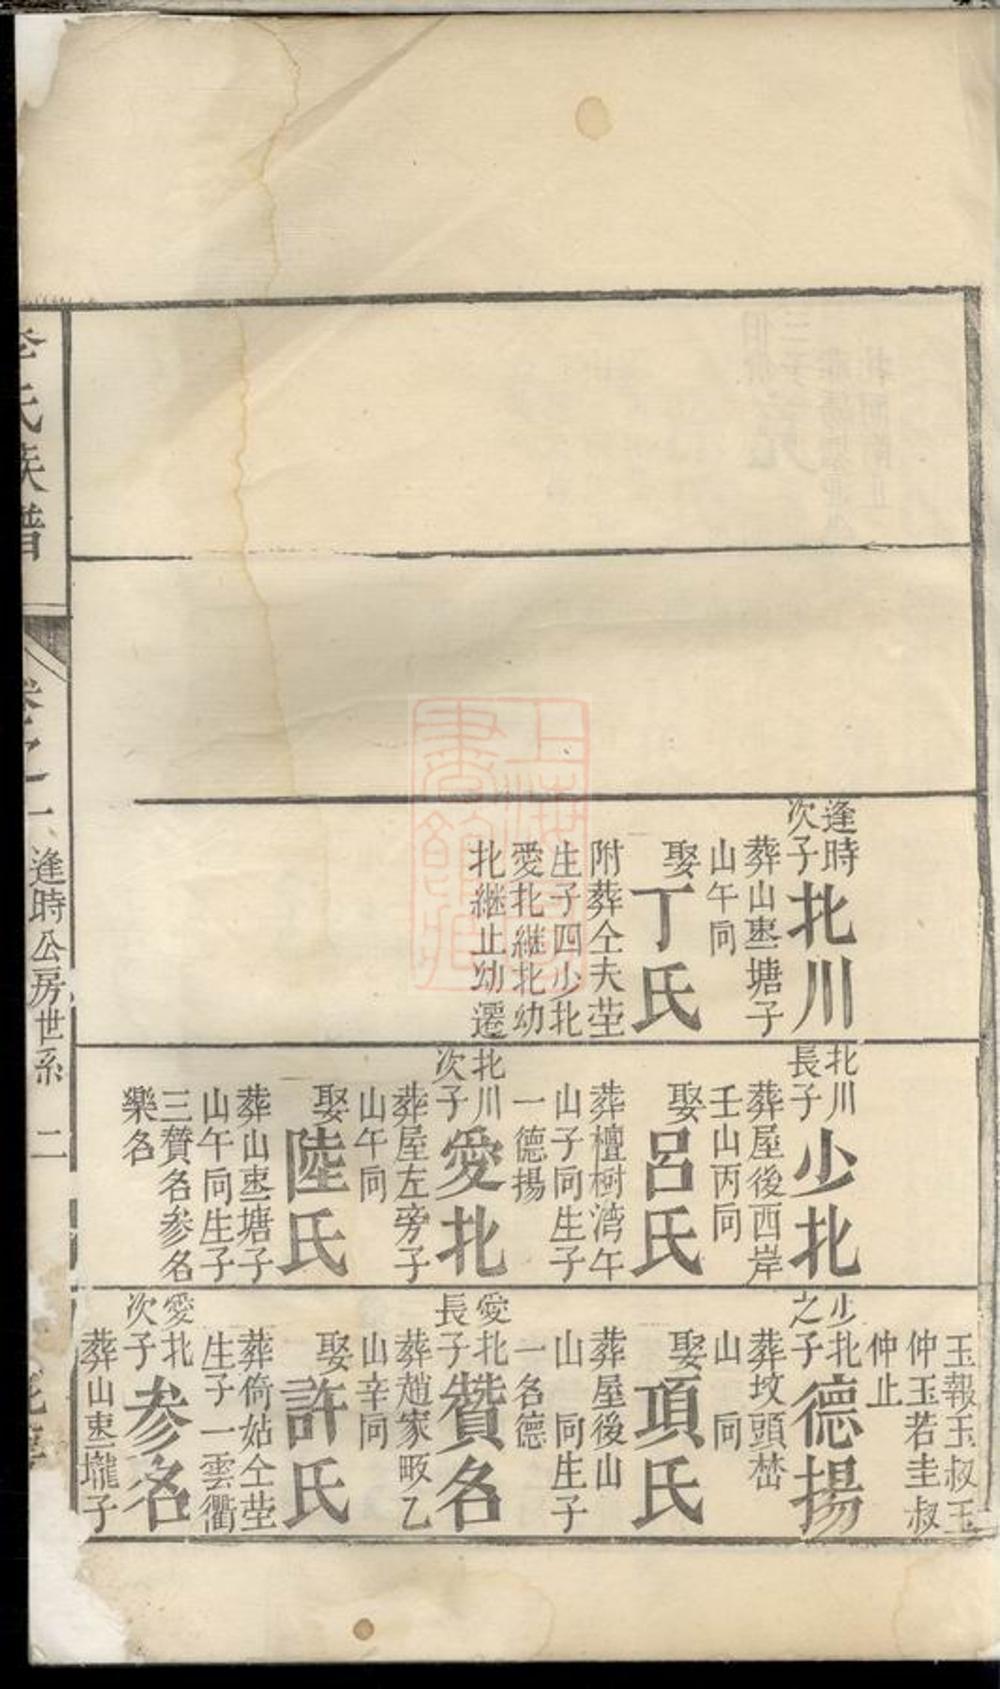 逢時
次子
北川
葬山塘子
山午向
娶丁氏
附葬仝夫茔
生子四少北
愛北継北幼
北継止幼遷
北川
長子
少北
葬屋後西岸
壬山丙向
娶呂氏
葬檀樹湾午
山子向生子
一德揚
北川
次子
愛北
葬屋左旁子
山午向
娶陸氏
葬山塘子
山午向生子
三賛名参名
樂名
玉報玉叔玉
仲玉若圭叔
仲止
少北
之子
德揚
葬坟頭
山 向
娶項氏
葬屋後山
山 向生子
一名德
愛北
長子
賛名
葬趙家畈乙
山辛向
娶許氏
葬倚姑仝茔
生子一雲衢
愛北
次子
参名
葬山壠子
氏族譜
卷之一
逢時公房世系
二
上海圖書館藏